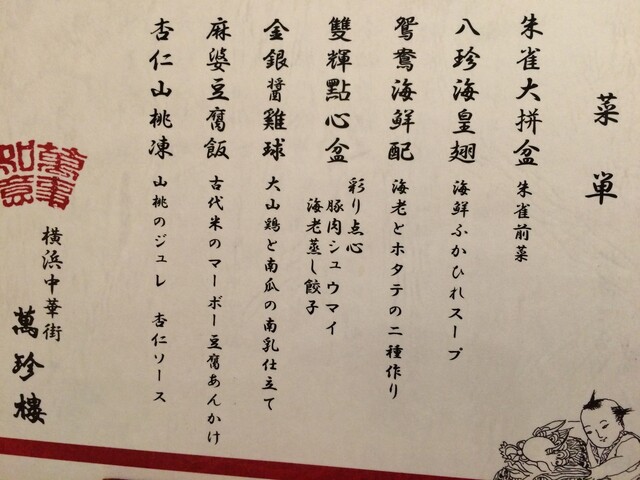 菜単
朱雀大拼盆 朱雀前菜
八珍海皇翅 海鮮ふかひれスープ
鴛鴦海鮮配 海老とホタテの二種作り
雙輝點心盆 彩り点心
豚肉シュウマイ
海老蒸し餃子
金銀醤雞球 大山鶏と南瓜の南乳仕立て
麻婆豆腐飯 古代米のマーボー豆腐あんかけ
杏仁山桃凍 山桃のジュレ 杏仁ソース
萬事如意
横浜中華街
萬珍樓